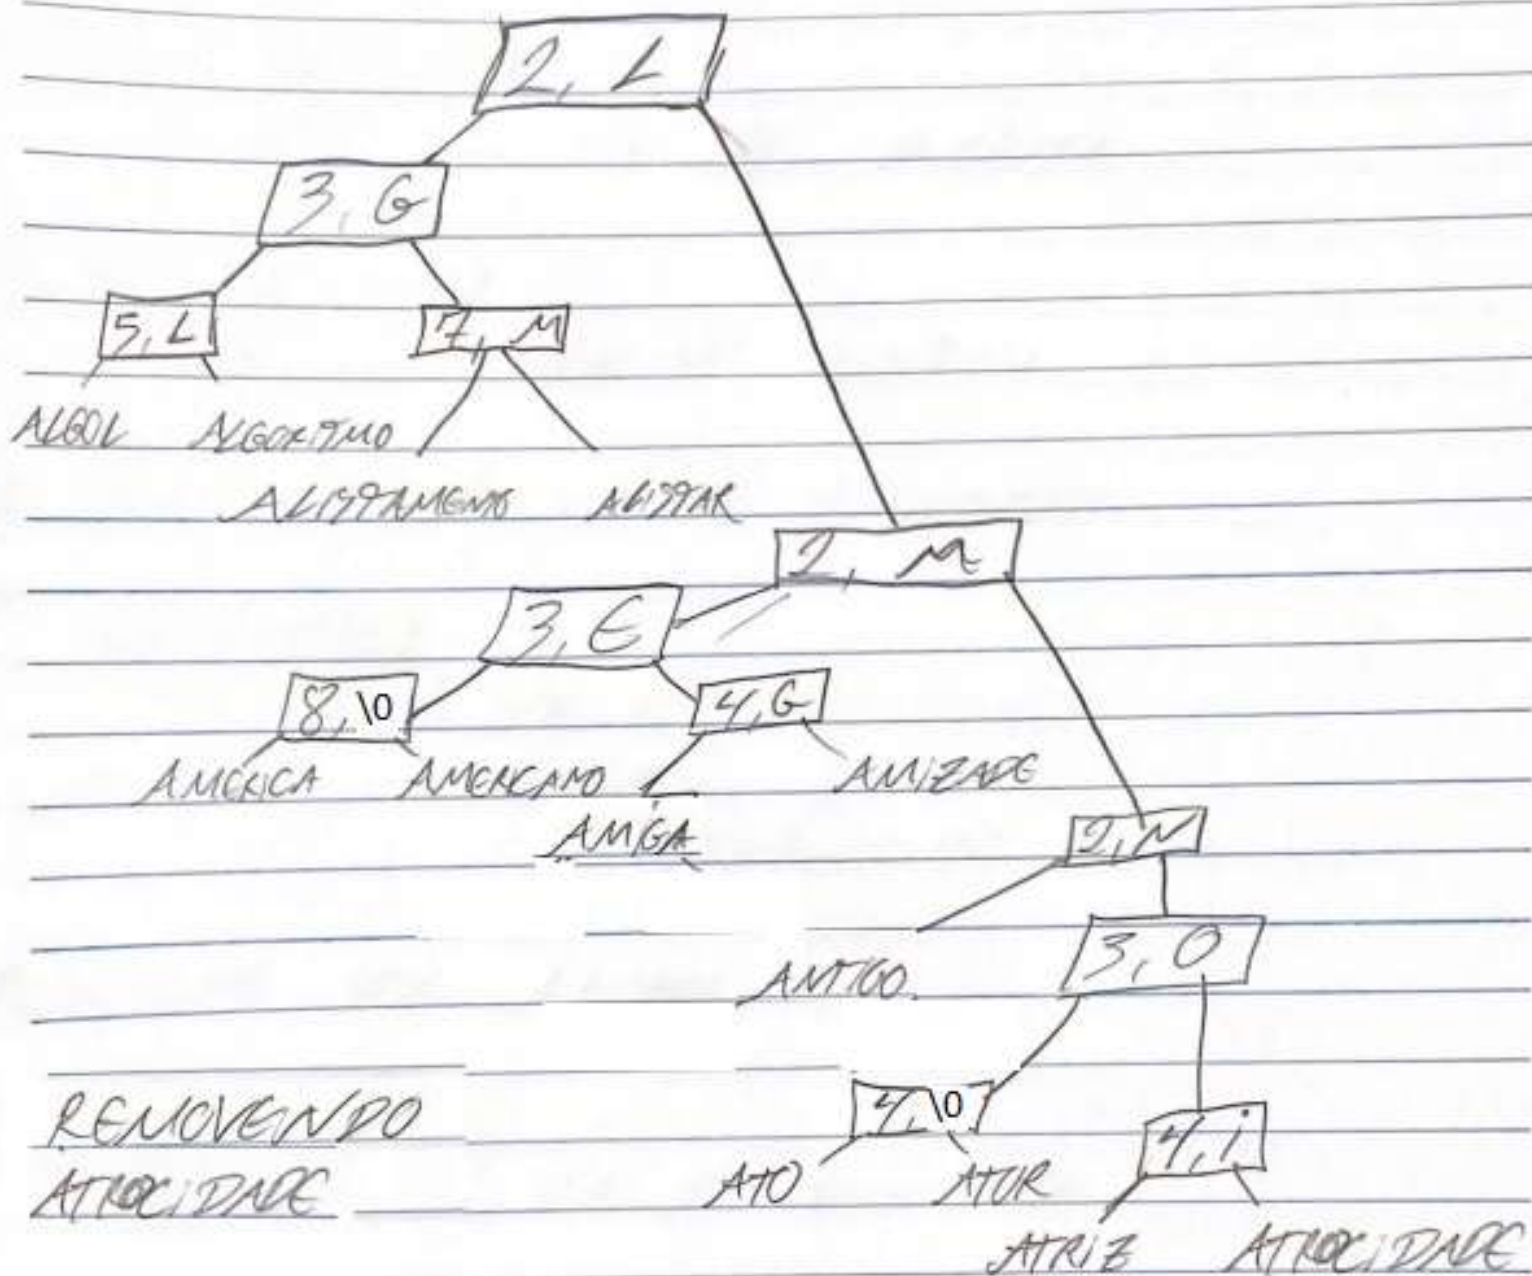 2, L
3, G
5, L
7, M
ALGOL ALGORITMO
ALISTAMENTO ALISTAR
2, M
3, E
8, \0
4, G
AMERICA AMERICANO
AMIZADE
AMIGA
2, N
3, O
ANTIGO
4, \0
4, i
REMOVENDO
ATROCiDADE
ATO ATOR
ATRiZ ATROCiDADE